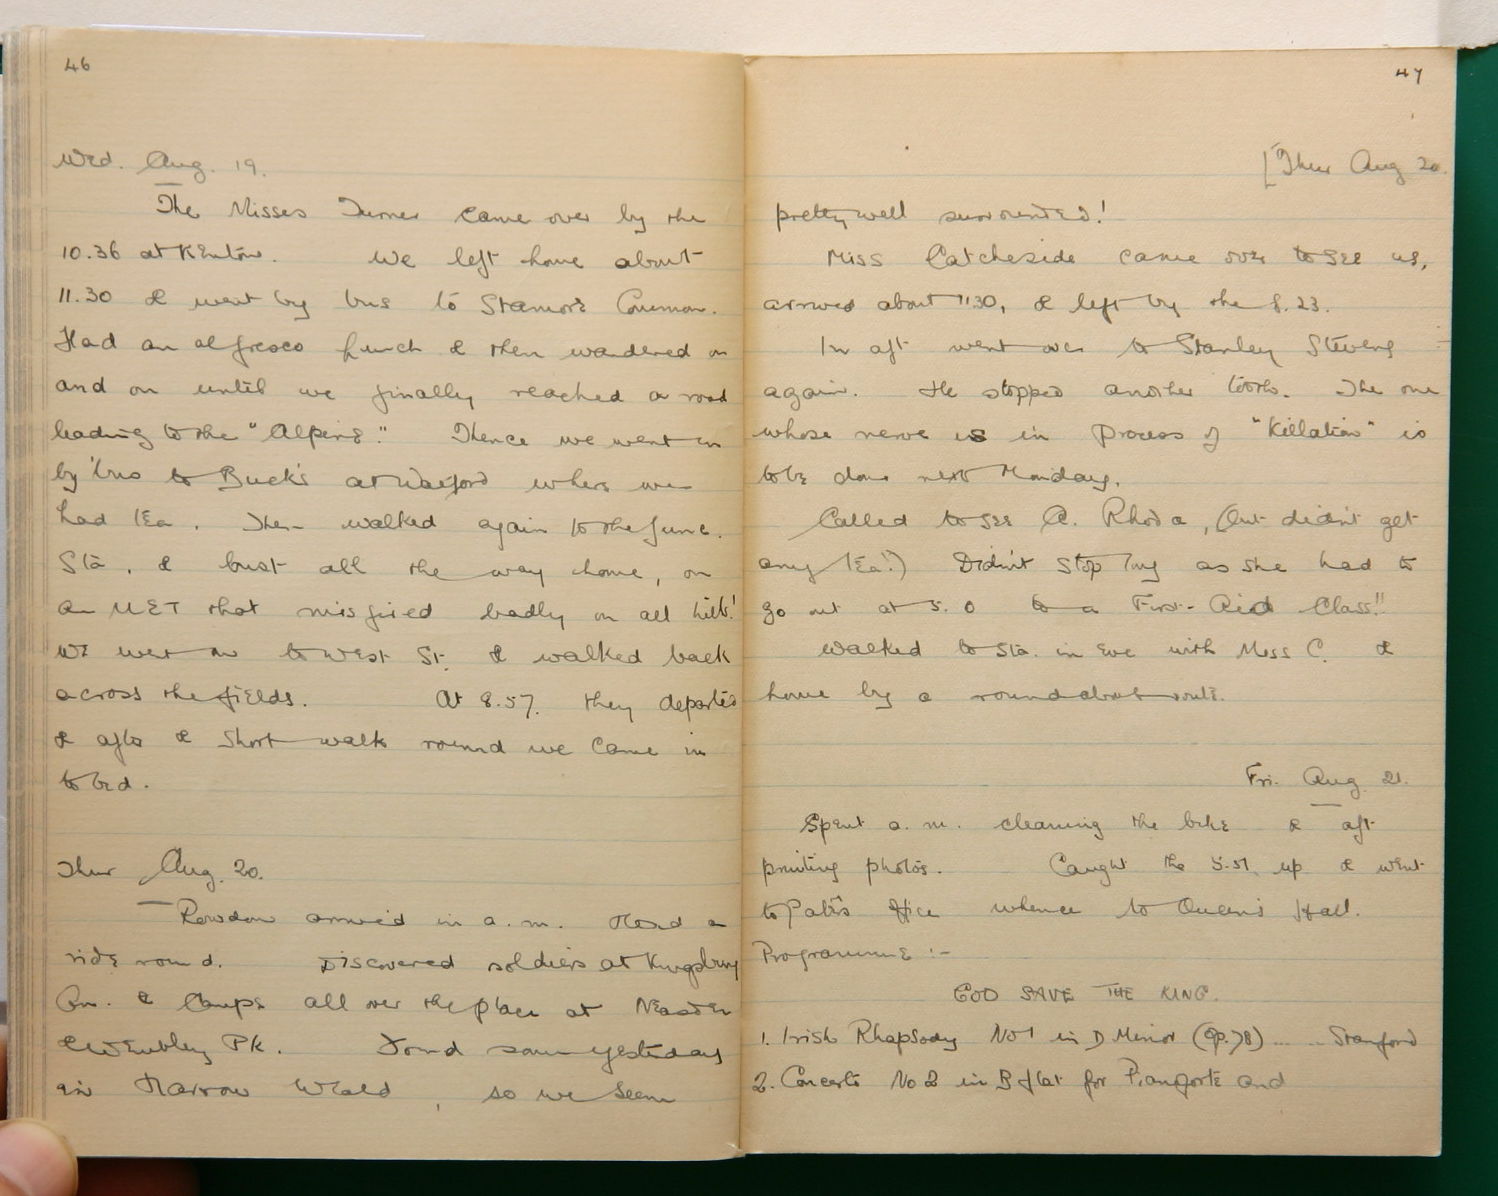 46
Wed. Aug. 19.
The Misses Turner came over by the
10.36 at Kenton. We left home about
11.30 & went by bus to Stanmore Common.
Had an alfresco lunch & then wandered on
and on until we finally reached a road
leading to the "Alpine." Thence we went on
by 'bus to Buck's at Watford where we
had tea. Then walked again to the Junc.
Sta, & bust all the way home, on
an MET that misfired badly on all hills!
We went on to West St. & walked back
across the fields. At 8.57. they departed
& after a short walk round we came in
to bed.
Thur Aug. 20.
Rowdon arrived in a.m. Had a
ride round. Discovered soldiers at Kingsbury
Gn. & Camps all over the place at Neasden
& Wembley Pk. Found some yesterday
in Harrow Weald, so we seem
47
[Thur Aug 20.
pretty well surrounded!
Miss Catcheside came over to see us,
arrived about 11.30, & left by the 8.23.
In aft went over to Stanley Stevens
again. He stopped another tooth. The one
whose nerve is in process of "Killation" is
to be done next Monday.
Called to see A. Rhoda, (but didn't get
any tea!) Didn't stop long as she had to
go out at 5.0 to a First-Aid Class!!
Walked to Sta. in eve with Miss C. &
home by a roundabout route.
Fri. Aug. 21.
Spent a.m. cleaning the bike & aft
printing photos. Caught the 5.51 up & went
to Pater's Office whence to Queen's Hall.
Programme :-
GOD SAVE THE KING.
1. Irish Rhapsody No 1 in D Minor (Op.78) .... Stanford
2. Concerto No 2 in B flat for Pianoforte and